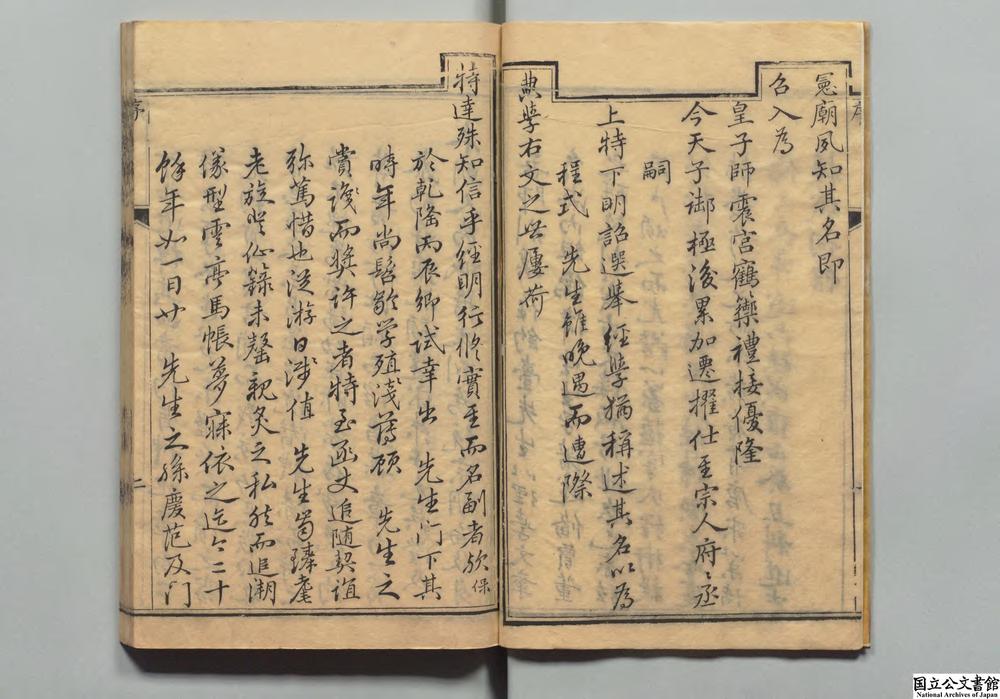 憲廟夙知其名即
召入為
皇子師震宮鶴籞禮接優隆
今天子御極後累加遷擢仕至宗人府〻丞
嗣
上特下明詔選舉經學猶稱述其名以為
程式 先生雖晚遇而遭際
典學右文之世屢荷
特達殊知信乎經明行修實至而名副者歟保
於乾隆丙辰鄉試幸出 先生門下其
時年尚髫齡學殖淺薄顧 先生之
賞識而獎許之者特至函丈追隨契誼
弥篤惜也從游日淺值 先生篤臻耄
老旋登仙籙未罄親炙之私然而追溯
儀型雲亭馬帳夢寐依之迄今二十
餘年如一日廿 先生之孫慶范及門
序
二
国立公文書館
National Archives of Japan